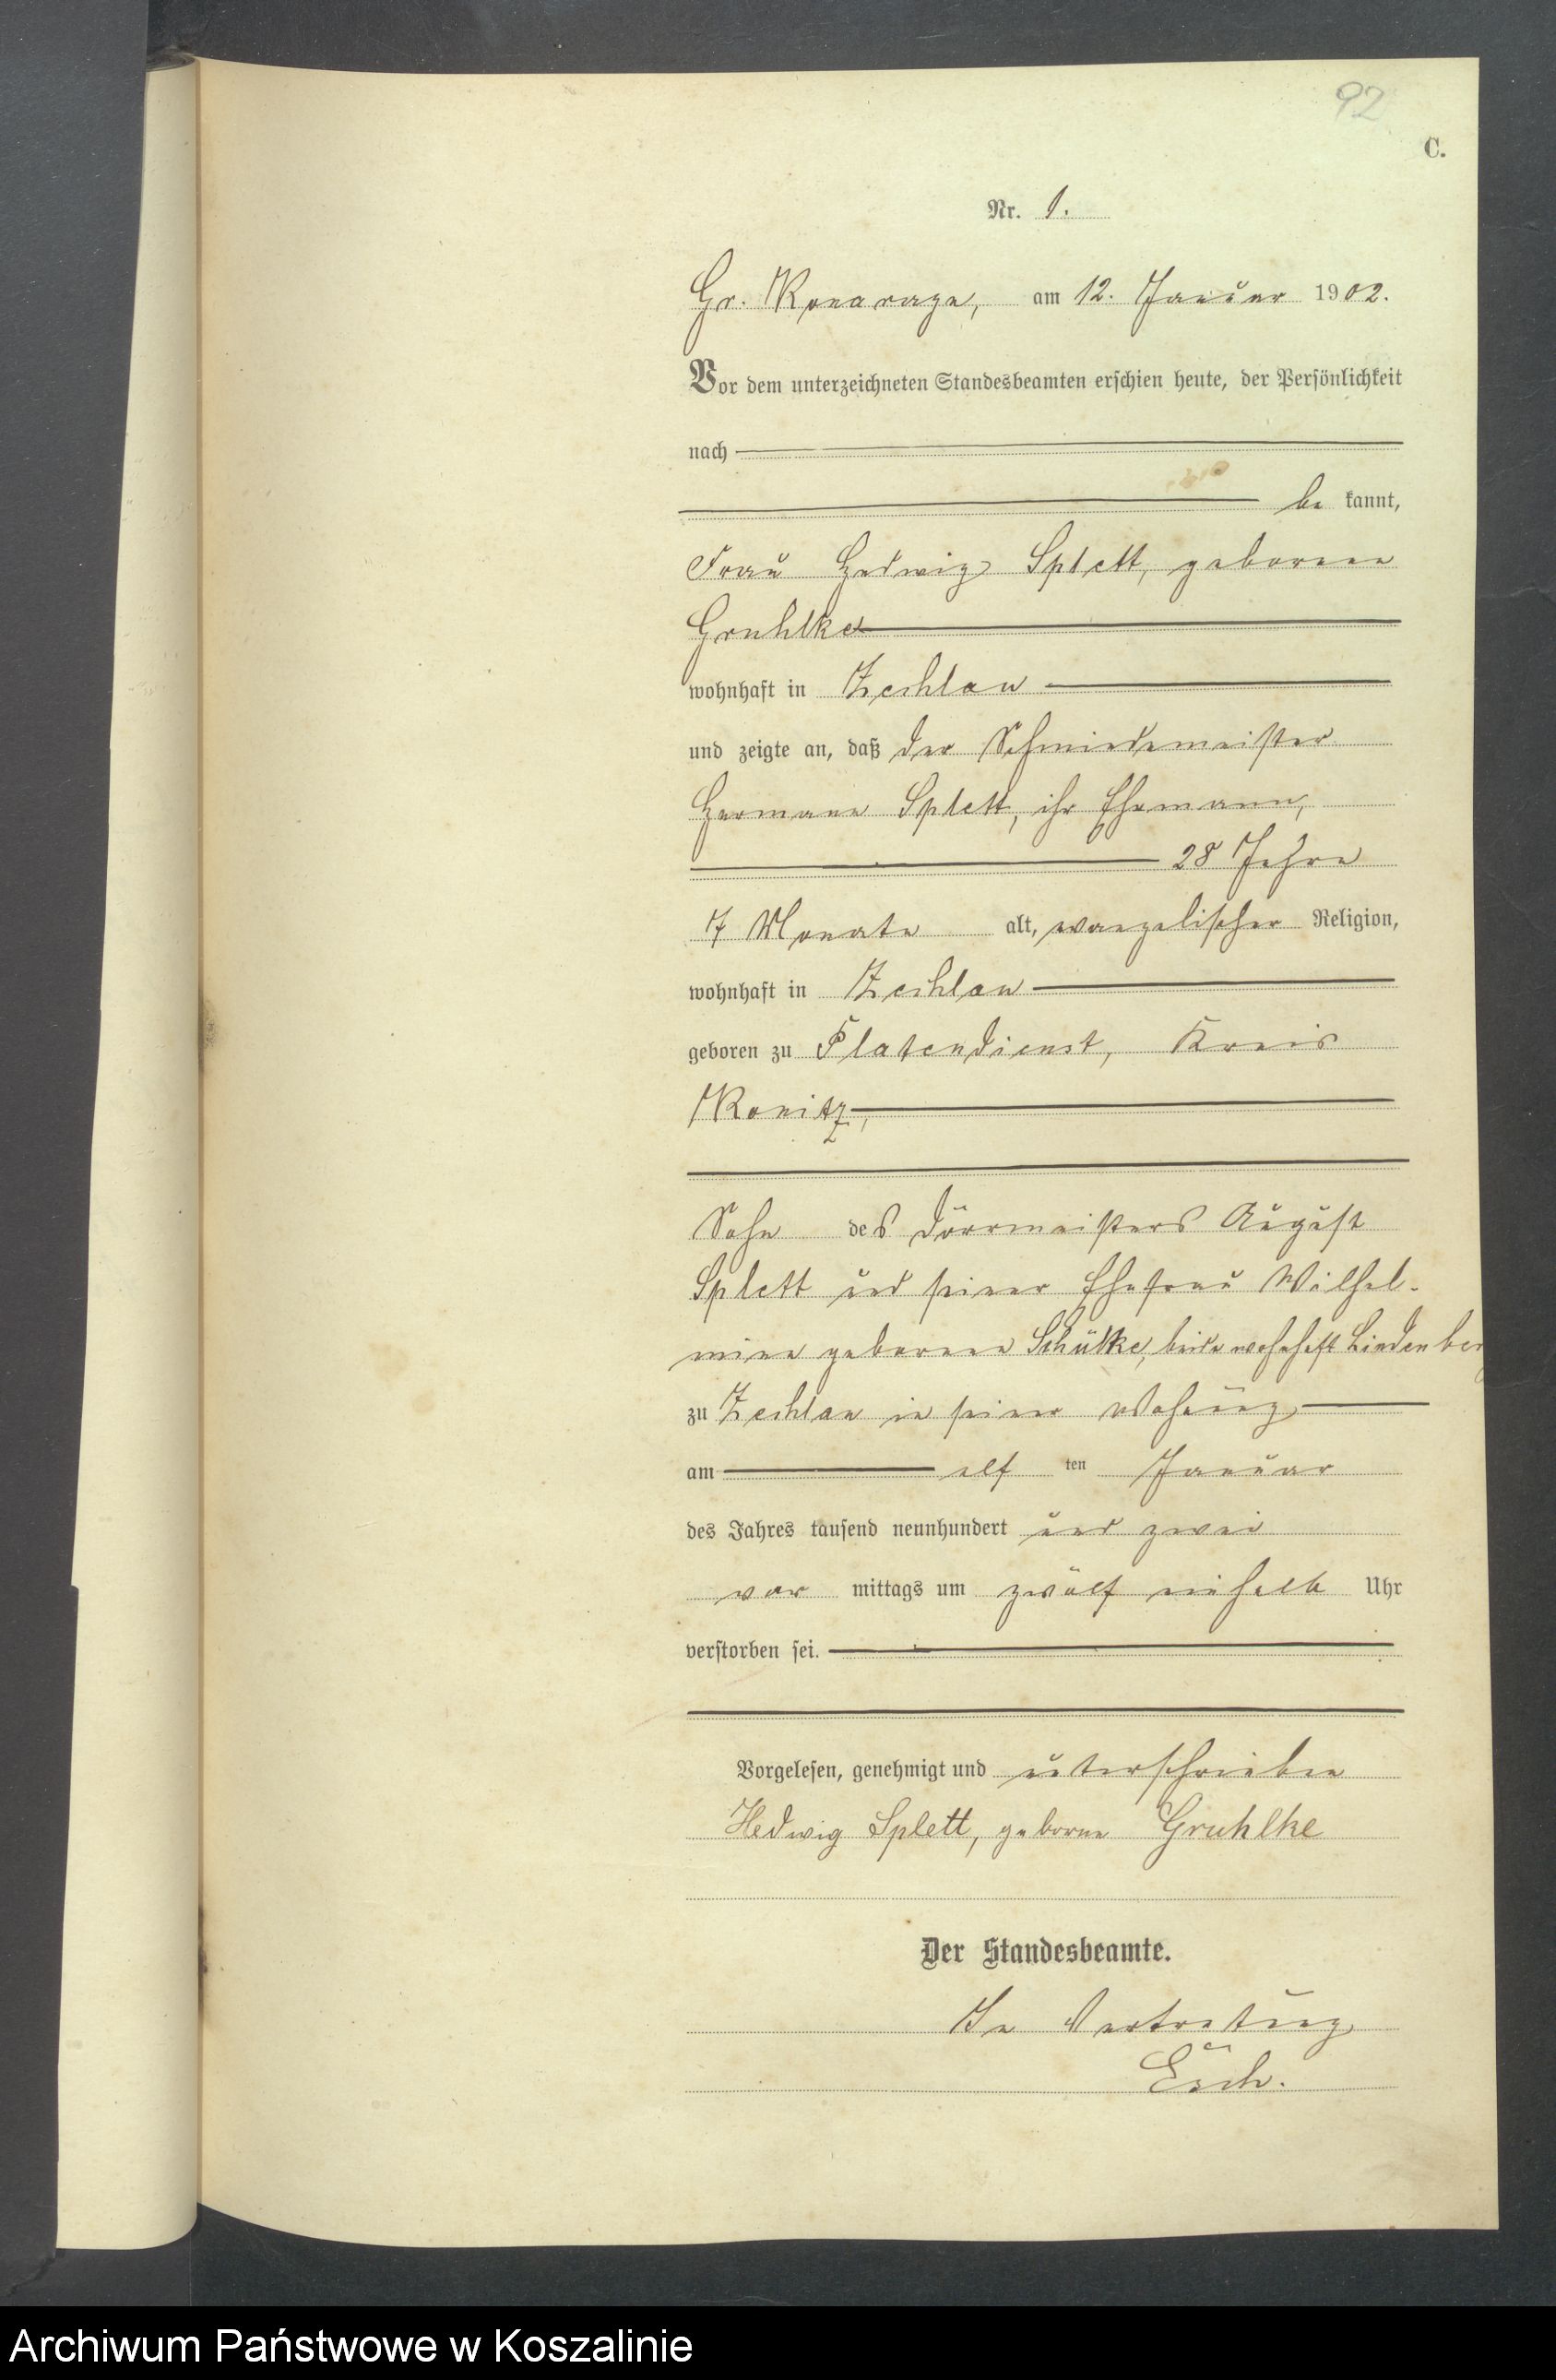 92
C.
Nr. 1.
Gr. Konarazn, am 12. Januar 1902.
Vor dem unterzeichneten Standesbeamten erschien heute, der Persönlichkeit
nach
be kannt,
Frau Hedwig Splett, geborene
Gruhlke
wohnhaft in Zechlau
und zeigte an, daß der Schmiedemeister
Hermann Splett, ihr Ehemann,
28 Jahre
7 Monate alt, evangelischer Religion,
wohnhaft in Zechlau
geboren zu Platendienst, Kreis
Konitz,
Sohn des Dörrmeisters August
Splett und seiner Ehefrau Wilhel-
mine geborene Schülke, beide wohnhaft Lindenberg
zu Zechlau in seiner Wohnung
am elf ten Januar
des Jahres tausend neunhundert und zwei
vor mittags um zwölf einhalb Uhr
verstorben sei.
Vorgelesen, genehmigt und unterschrieben
Hedwig Splett, geborne Gruhlke
Der Standesbeamte.
In Vertretung
Archiwum Państwowe w Koszalinie